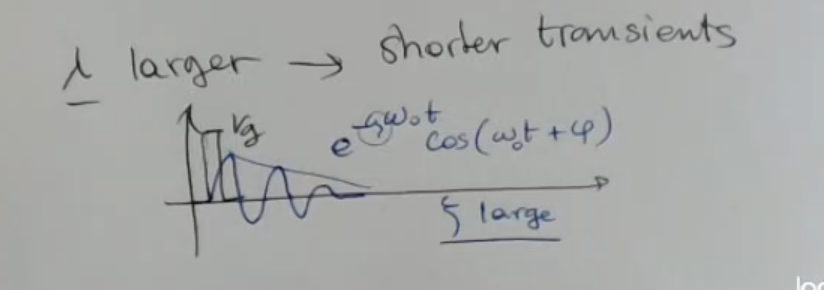 λ larger → shorter transients
Vg
e^{-ζω₀t} cos(ω₀t + φ)
ζ large